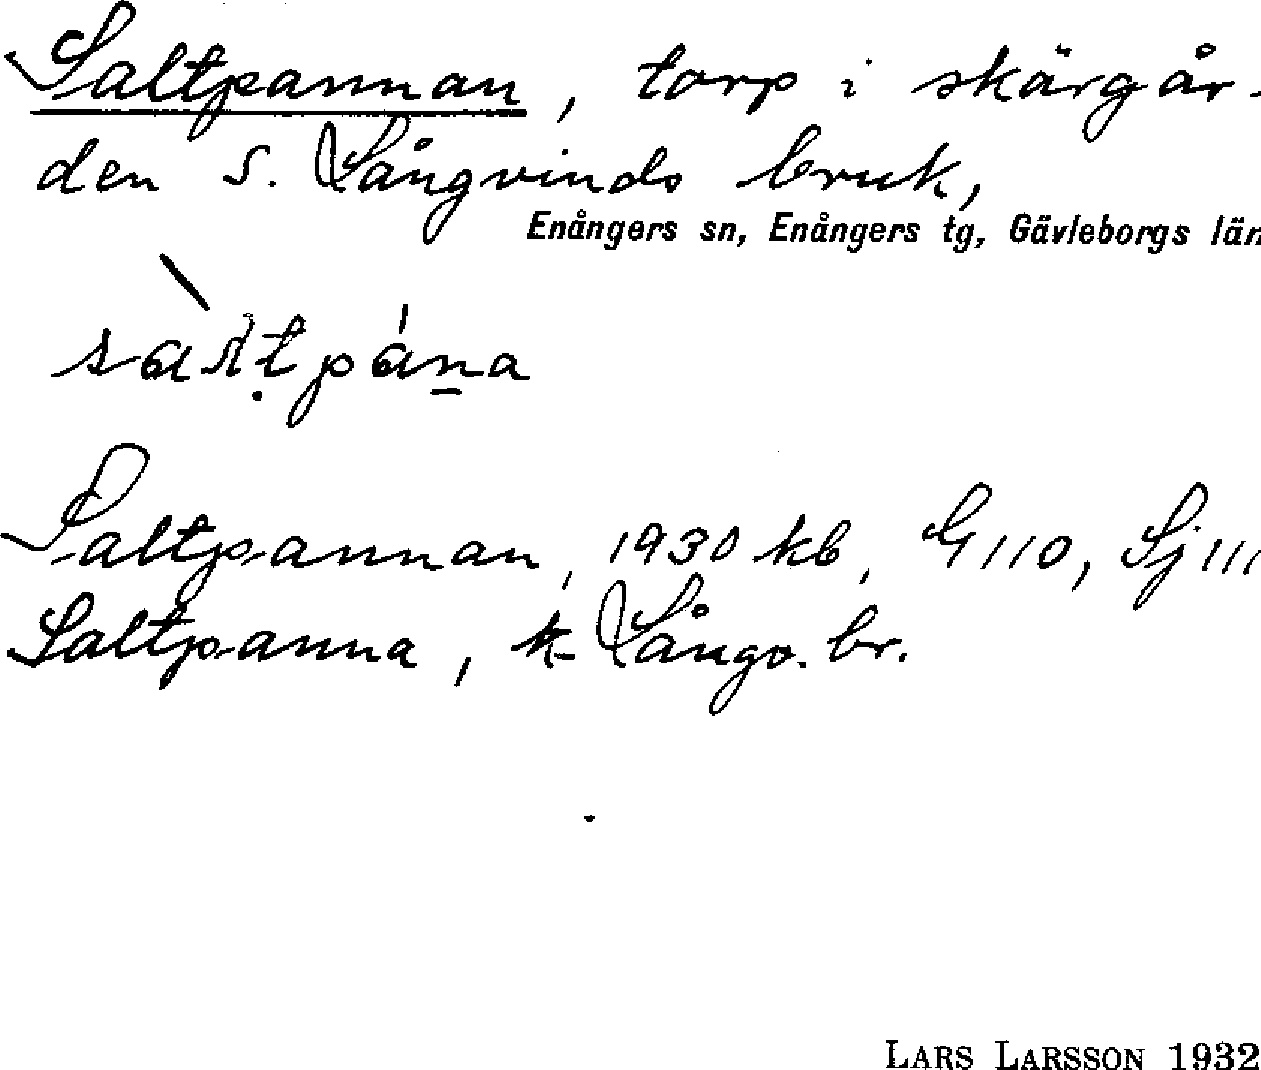 Saltpannan, torp i skärgår-
den S. Långvinds bruk,
Enångers sn, Enångers tg, Gävleborgs län
Saltpannan, 1930 kb, G 110, Sj 111
Saltpanna, k Långv. br.
LARS LARSSON 1932